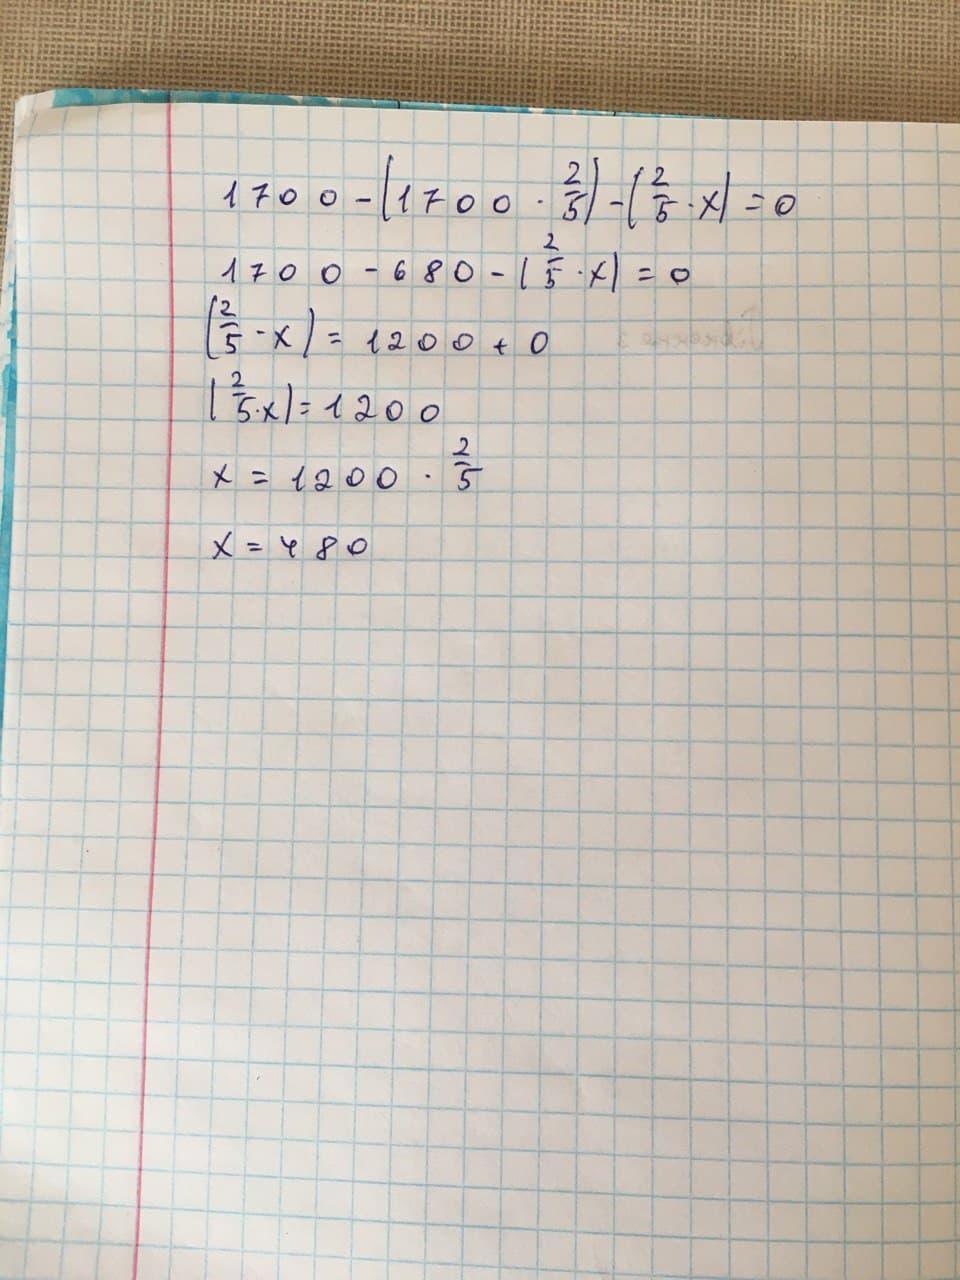 1700 - (1700 · 2/5) - (2/5 · x) = 0
1700 - 680 - (2/5 · x) = 0
(2/5 - x) = 1200 + 0
(2/5 · x) = 1200
x = 1200 · 2/5
x = 480